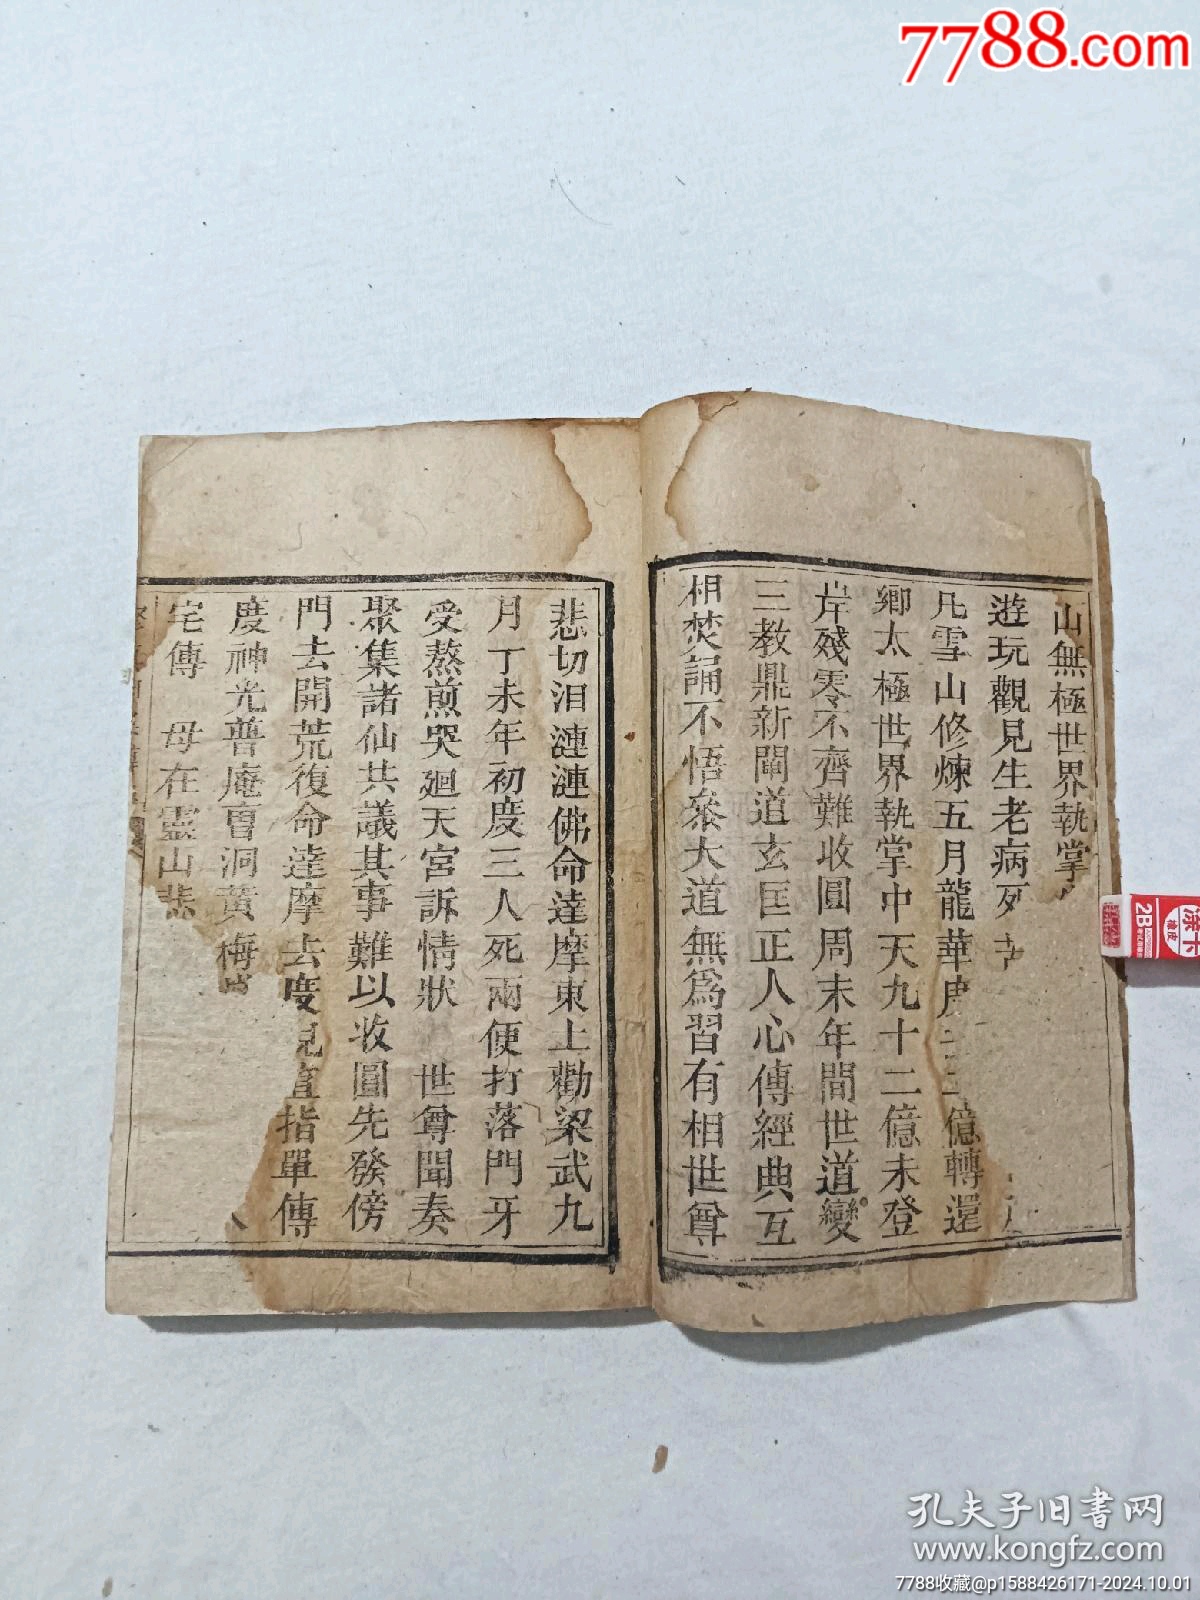 7788.com
山無極世界執掌
遊玩觀見生老病死
凡雪山修煉五月龍華 億轉還
鄉太極世界執掌中天九十二億未登
岸殘零不齊難收圓周末年間世道變
三教鼎新闡道玄匡正人心傳經典互
相焚誦不悟叅大道無爲習有相世尊
悲切泪漣漣佛命達摩東上勸梁武九
月丁未年初度三人死兩便打落門牙
受熬煎哭廻天宮訴情狀 世尊聞奏
聚集諸仙共議其事難以收圓先發傍
門去開荒復命達摩去度見直指單傳
度神光普庵曹洞黃梅
宅傳 母在靈山悲
2B
涂卡
橡皮
孔夫子旧書网
www.kongfz.com
7788收藏@p1588426171-2024.10.01